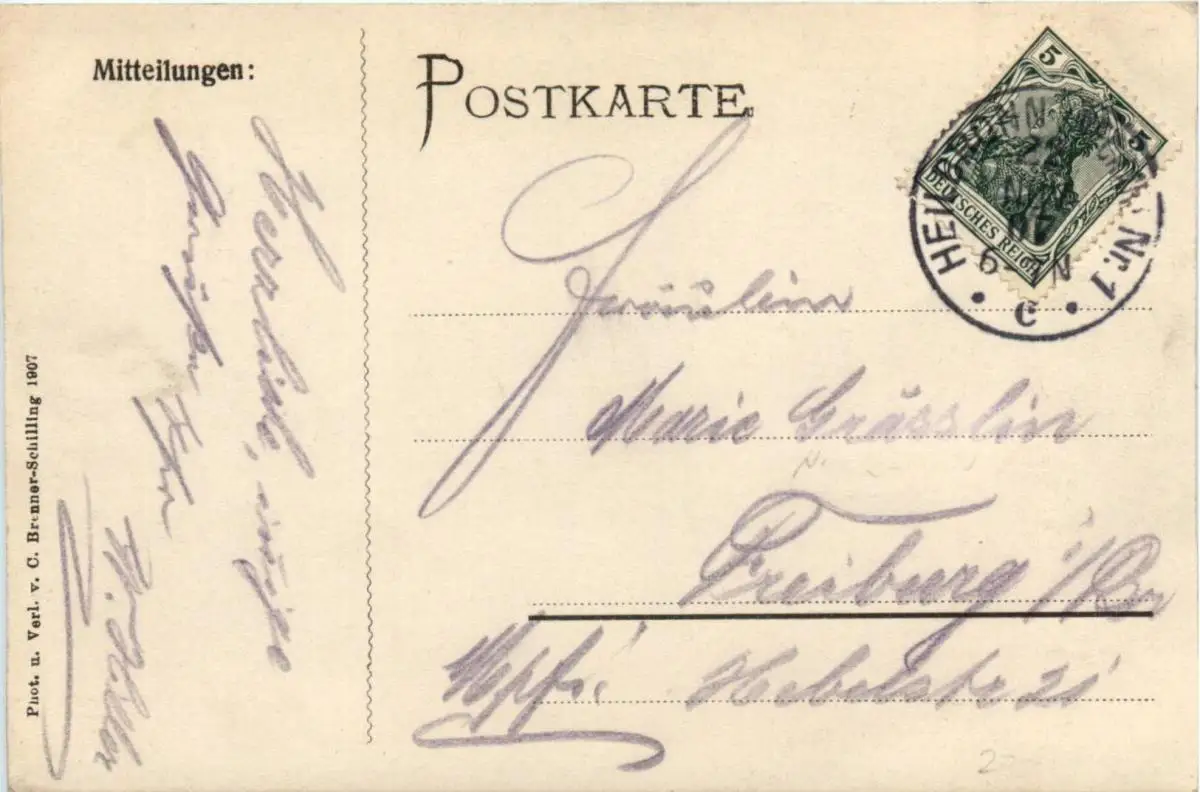 Mitteilungen:
POSTKARTE
5
5
DEUTSCHES REICH
HEILBRONN Nr. 1
6-7 N
c
Fräulein
Marie Grässlin
Freiburg i/Br
Hebelstr 21
Herzliche, innige
Grüße
Phot. u. Verl. v. C. Brenner-Schilling 1907